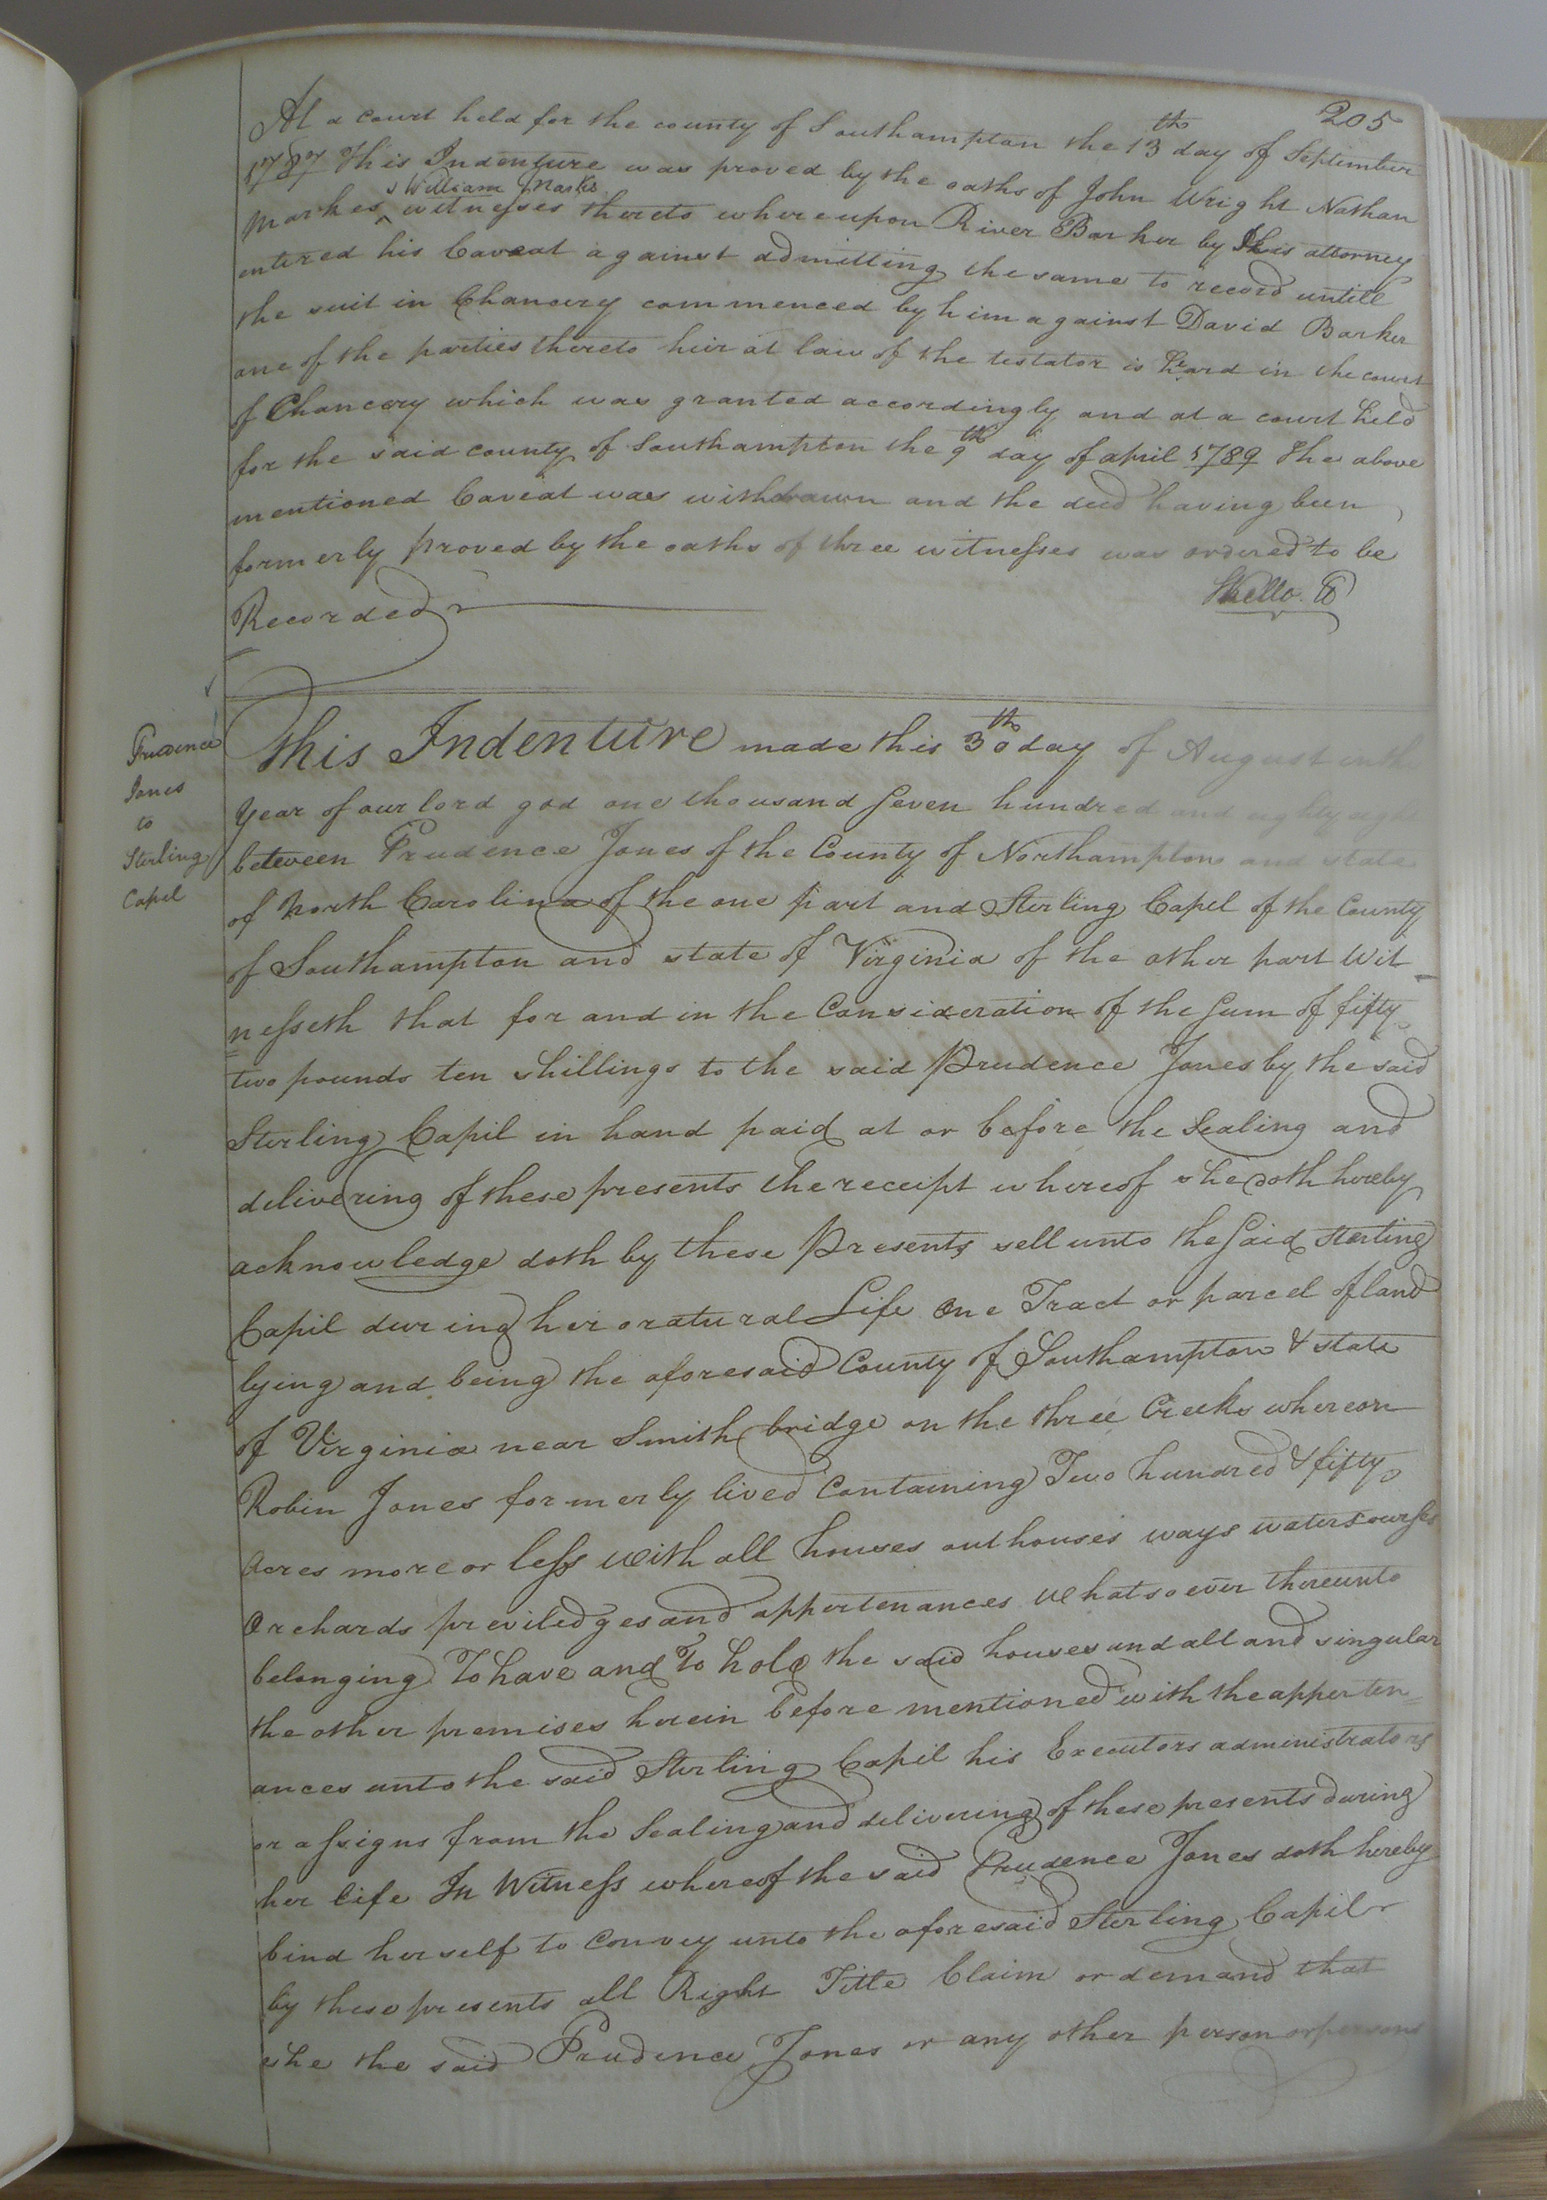 205
At a court held for the county of Southampton the 13th day of September
1787 This Indenture was proved by the oaths of John Wright Nathan
& William Marks
Markes ^ witnesses thereto whereupon River Barker by his attorney
entered his Caveat against admitting the same to record untill
the suit in Chancery commenced by him against David Barker
one of the parties thereto heir at law of the testator is heard in the court
of Chancery which was granted accordingly and at a court held
for the said county of Southampton the 9th day of april 1789 The above
mentioned Caveat was withdrawn and the deed having been
formerly proved by the oaths of three witnesses was ordered to be
Recorded
Prudence
Jones
to
Sterling
Capel
This Indenture made this 30th day of August in the
year of our lord god one thousand Seven hundred and eighty eight
between Prudence Jones of the County of Northampton and state
of North Carolina of the one part and Sterling Capel of the County
of Southampton and state of Virginia of the other part Wit
nesseth that for and in the Consideration of the Sum of fifty
two pounds ten shillings to the said Prudence Jones by the said
Sterling Capil in hand paid at or before the Sealing and
delivering of these presents the receipt whereof she doth hereby
acknowledge doth by these Presents sell unto the Said Sterling
Capil during her oratural Life One Tract or parcel of land
lying and being the aforesaid County of Southampton & state
of Virginia near Smith bridge on the three Creeks whereon
Robin Jones formerly lived Containing Two hundred & fifty
Acres more or less with all houses outhouses ways watercourses
Orchards previledges and appertenances whatsoever thereunto
belonging To have and To hold the said houses and all and singular
the other premises herein before mentioned with the apperten=
ances unto the said Sterling Capil his Executors administrators
or assigns from the Sealing and delivering of these presents during
her life In Witness whereof the said Prudence Jones doth hereby
bind herself to Convey unto the aforesaid Sterling Capil
by these presents all Right Title Claim or demand that
she the said Prudence Jones or any other person or persons